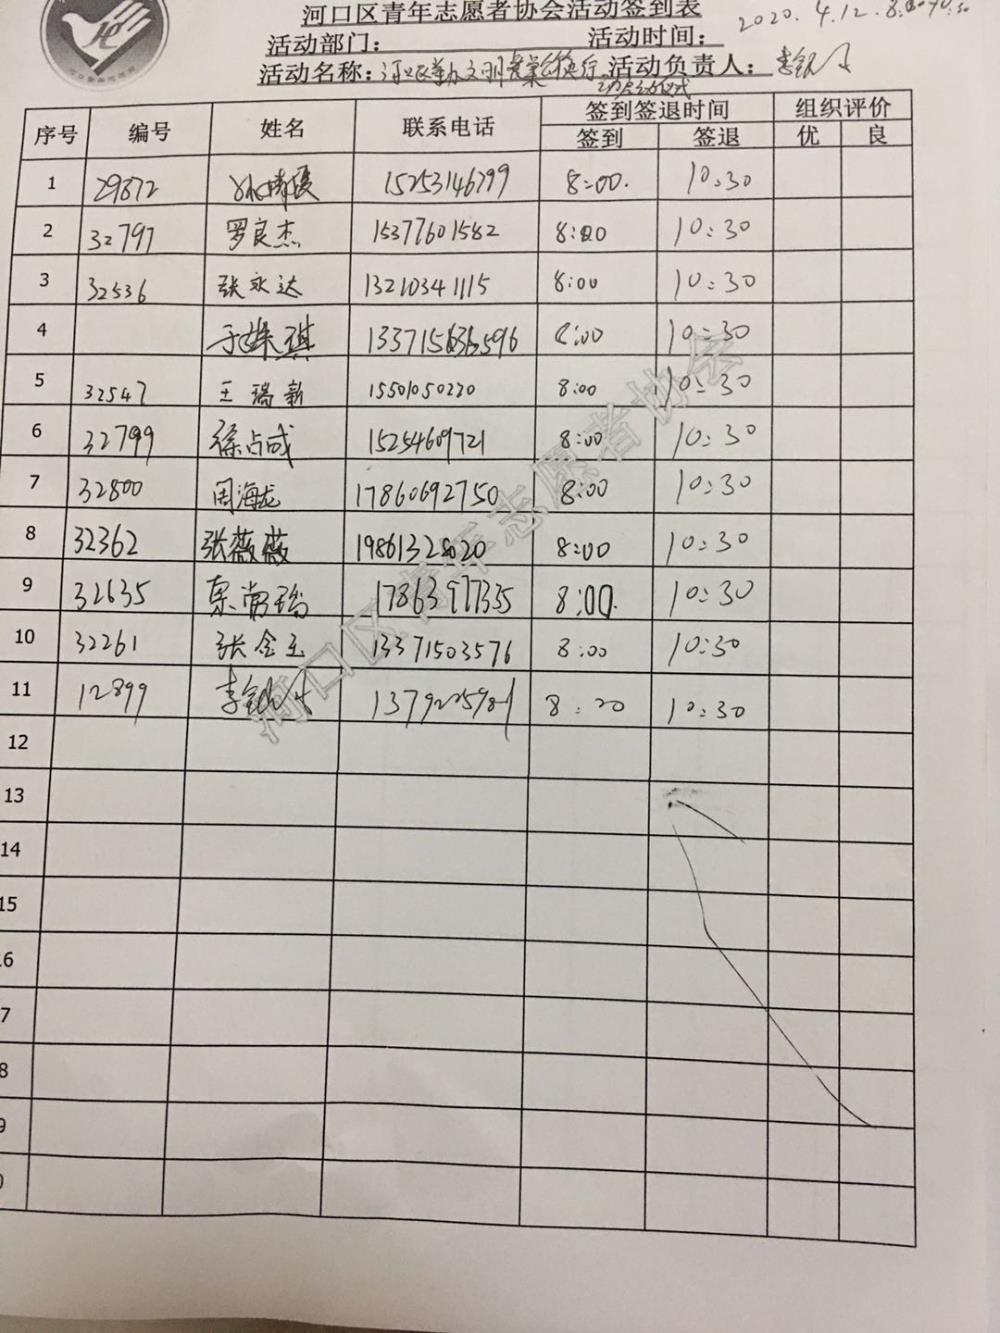 河口区青年志愿者协会活动签到表
活动部门： 活动时间： 2020.4.12.8:00-10:30
活动名称： 活动负责人：
启动仪式
序号 编号 姓名 联系电话 签到签退时间 组织评价
签到 签退 优 良
1 29872 15253146799 8:00. 10:30
2 32797 罗良杰 15377601582 8:00 10:30
3 32536 张永达 13210341115 8:00 10:30
4 8:00 10:30
5 32547 王瑞新 15501050220 8:00 10:30
6 32799 徐占成 15254609721 8:00 10:30
7 32800 周海龙 17860692750 8:00 10:30
8 32362 张薇薇 19861328020 8:00 10:30
9 32635 17863977335 8:00. 10:30
10 32261 张金玉 13371503576 8:00 10:30
11 12899 8:20 10:30
12
13
14
15
6
7
8
9
河口区青年志愿者协会